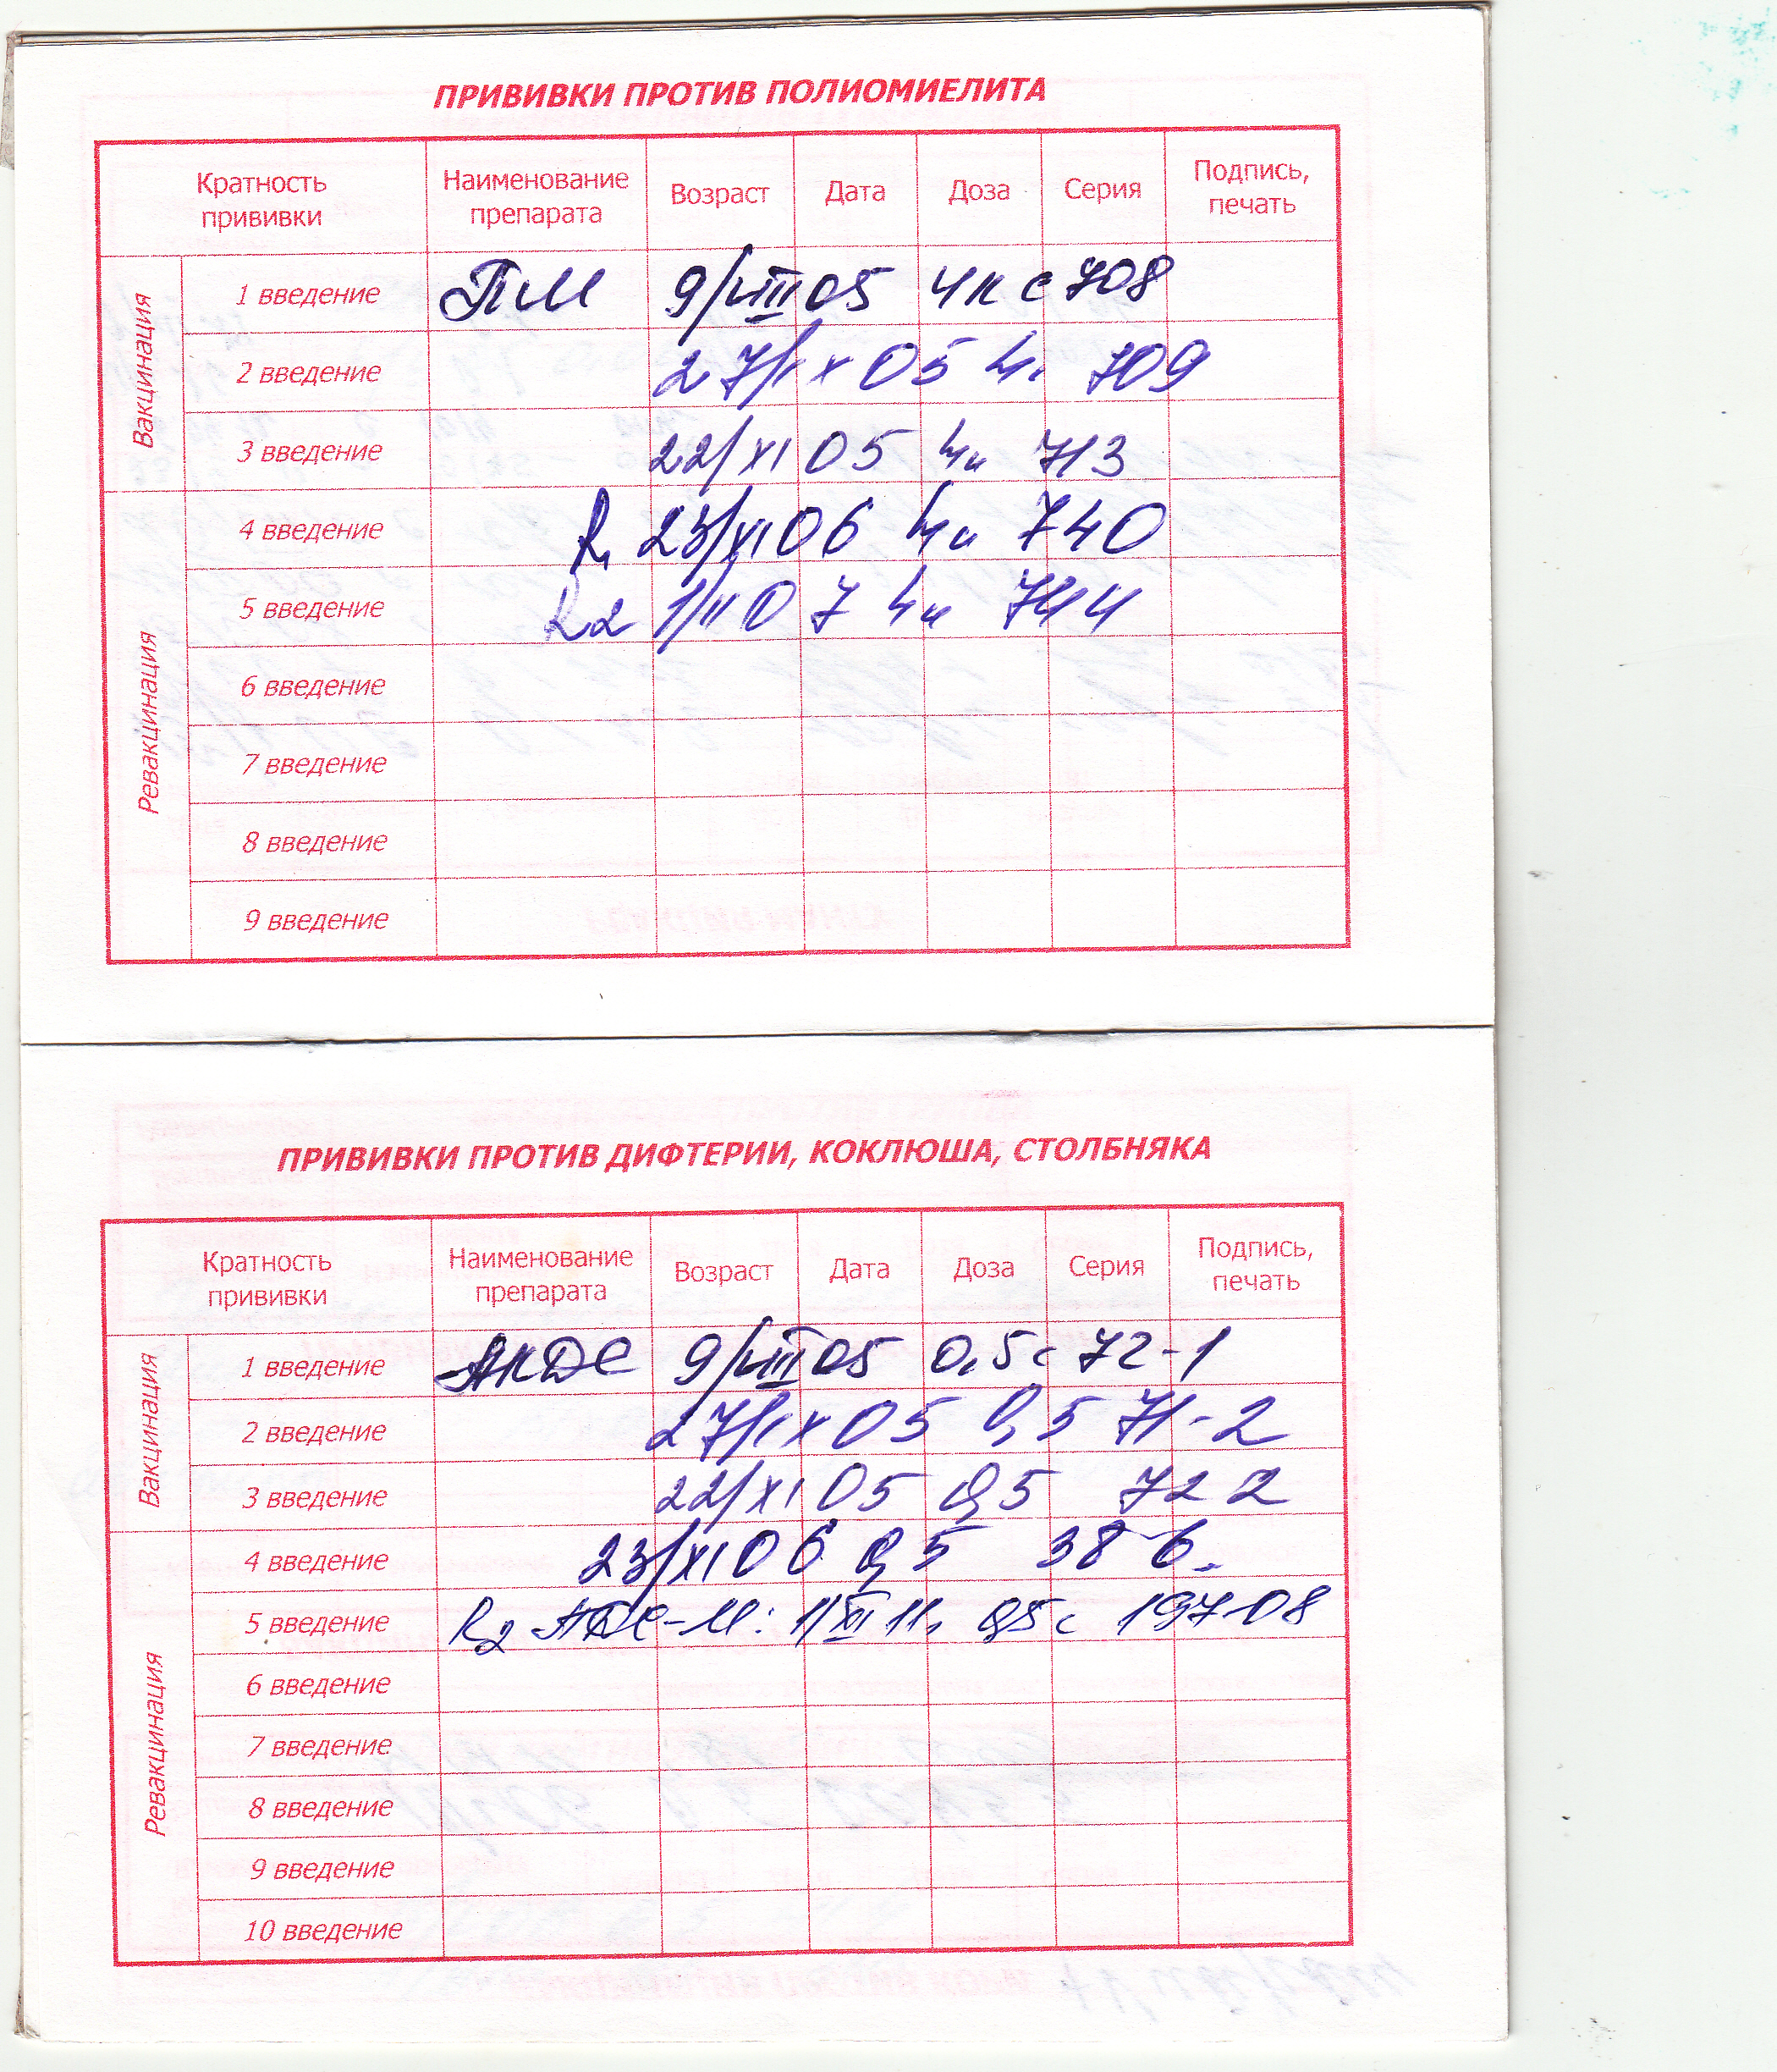 ПРИВИВКИ ПРОТИВ ПОЛИОМИЕЛИТА
Кратность прививки Наименование препарата Возраст Дата Доза Серия Подпись, печать
Вакцинация
1 введение ПМ 9/VIII 05 4к с 708
2 введение 27/IX 05 4к 709
3 введение 22/XI 05 4к 713
Ревакцинация
4 введение R1 23/XI 06 4к 740
5 введение R2 1/II 07 4к 744
6 введение
7 введение
8 введение
9 введение
ПРИВИВКИ ПРОТИВ ДИФТЕРИИ, КОКЛЮША, СТОЛБНЯКА
Кратность прививки Наименование препарата Возраст Дата Доза Серия Подпись, печать
Вакцинация
1 введение АКДС 9/VIII 05 0,5 с 72-1
2 введение 27/IX 05 0,5 71-2
3 введение 22/XI 05 0,5 72 2
Ревакцинация
4 введение 23/XI 06 0,5 38-6.
5 введение R2 АДС-М: 0,5 с
6 введение
7 введение
8 введение
9 введение
10 введение